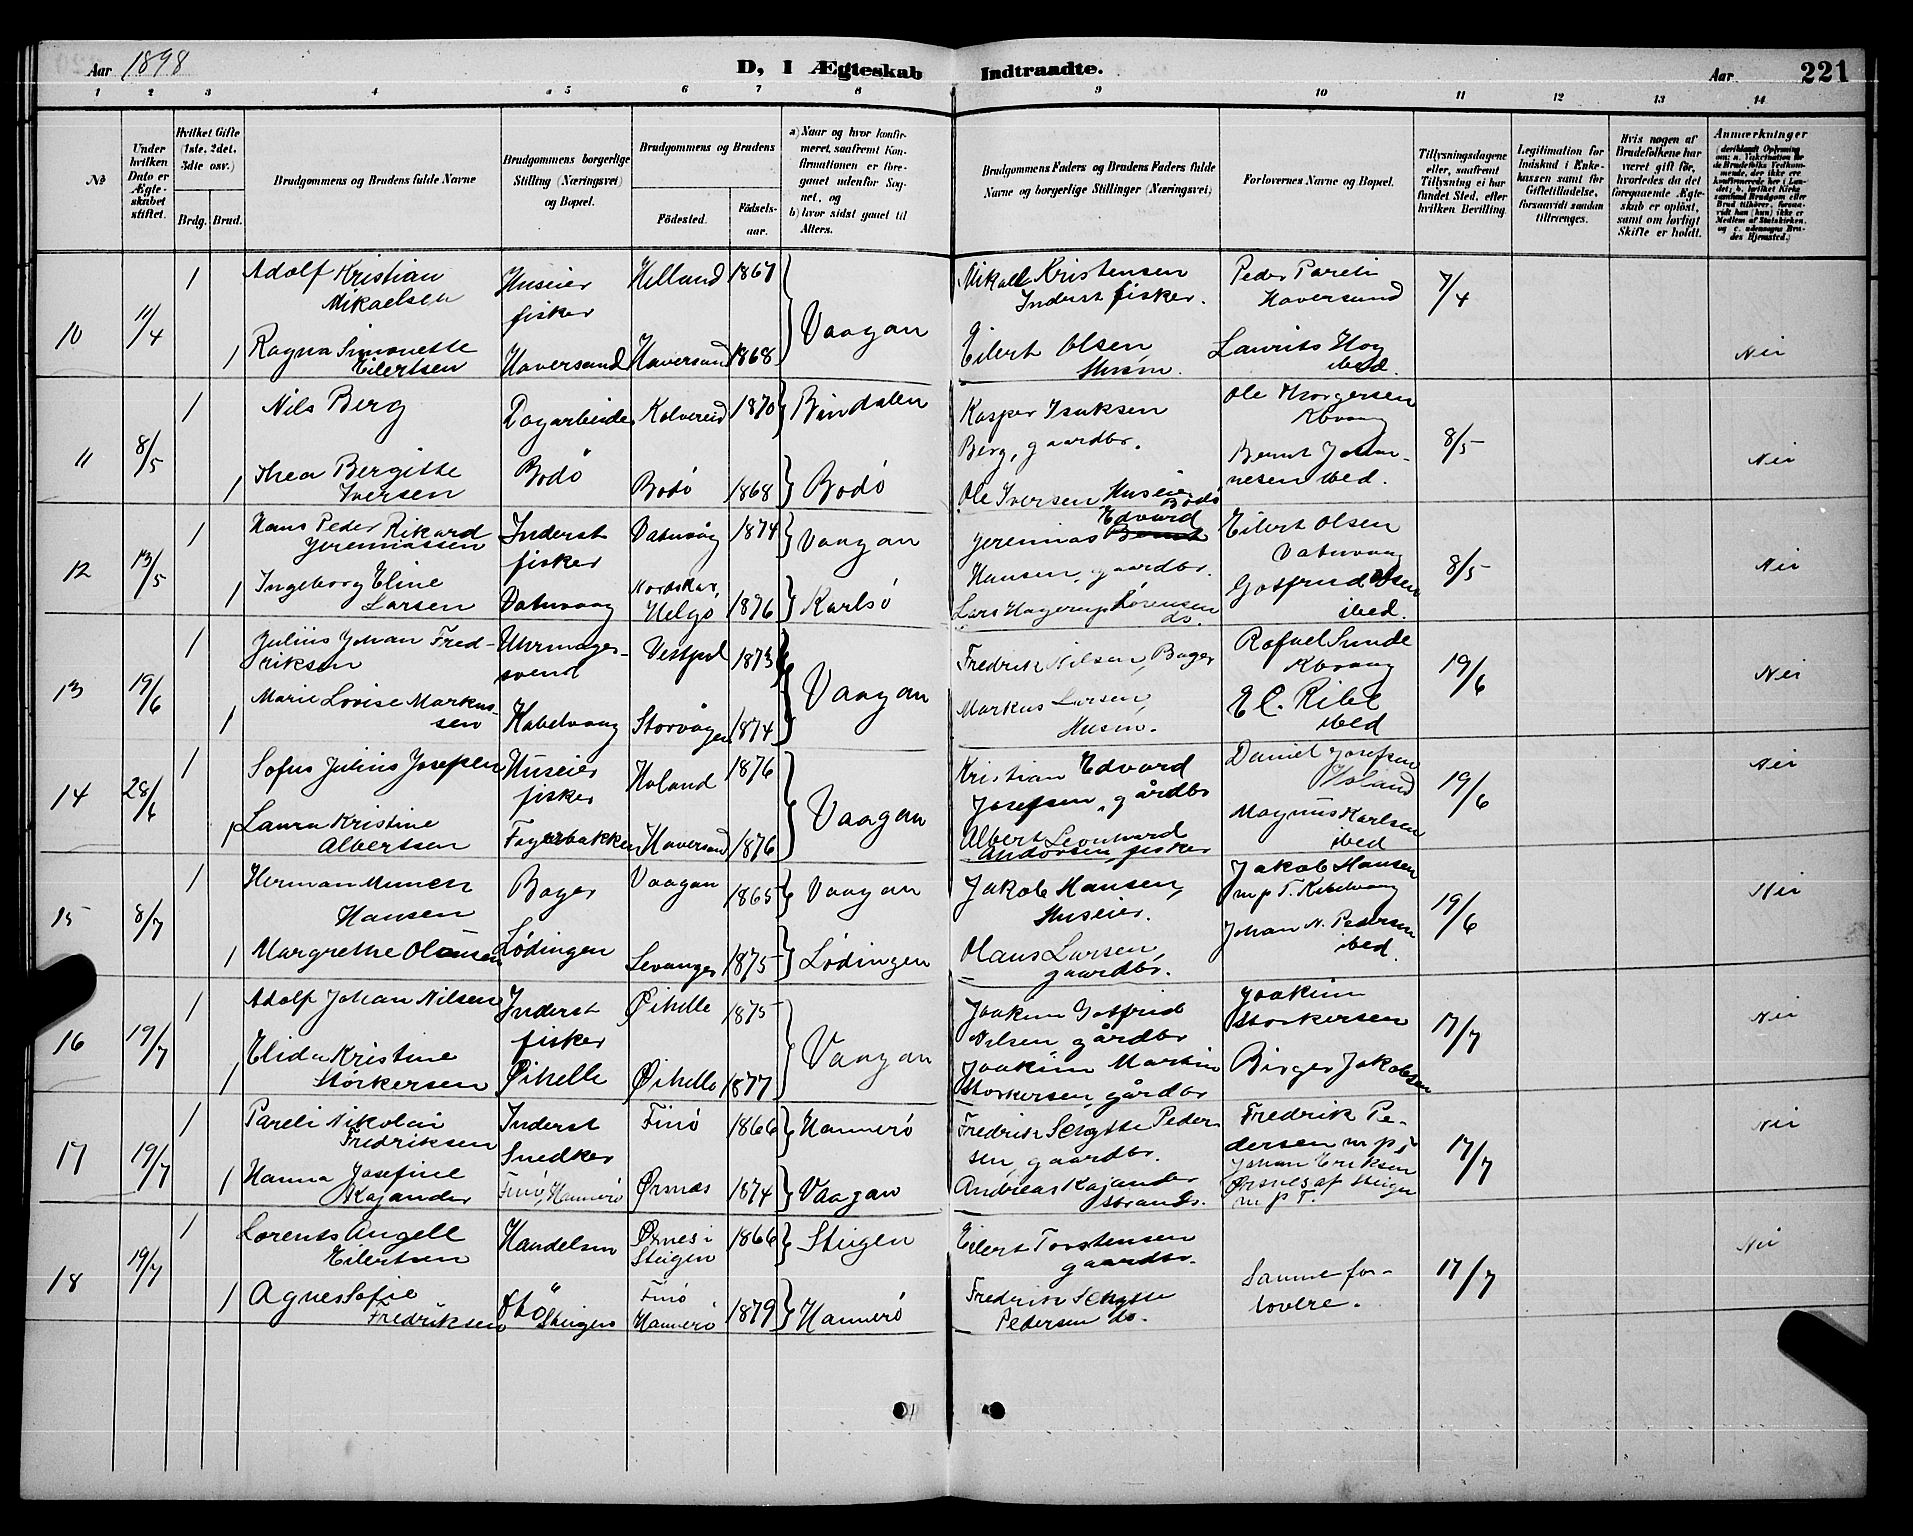 Aar 1898
D, I Ægteskab Indtraadte.
Aar
221
1 2 3 4 5 6 7 8 9 10 11 12 13 14
No
Under hvilken Dato er Ægteskabet stiftet.
Hvilket Gifte (1ste, 2det, 3die osv.)
Brdg. Brud.
Brudgommens og Brudens fulde Navne
Brudgommens borgerlige Stilling (Næringsvei) og Bopæl.
Brudgommens og Brudens
Fødested.
Fødselsaar.
a) Naar og hvor konfirmeret, saafremt Konfirmationen er foregaaet udenfor Sognet, og
b) hvor sidst gaaet til Alters.
Brudgommens Faders og Brudens Faders fulde Navne og borgerlige Stillinger (Næringsvei)
Forlovernes Navne og Bopæl.
Tillysningsdagene eller, saafremt Tillysning ei har fundet Sted, efter hvilken Bevilling.
Legitimation for Indskud i Enkekassen samt for Giftetilladelse, forsaavidt saadan tiltrænges.
Hvis nogen af Brudefolkene har været gift før, hvorledes da det foregaaende Ægteskab er opløst, samt om lovligt Skifte er holdt.
Anmærkninger
10 11/4
1 Adolf Kristian Mikaelsen Huseier fisker Helland 1867
1 Ragna Simonette Eilertsen Haversund Haversund 1868
Vaagan
Mikael Kristensen Inderst fisker.
Eilert Olsen Husm.
Peder Pareli Haversund
Laurits Hog ibed.
7/4
Nei
11 8/5
1 Nils Berg Dagarbeider Kolvereid 1870 Bindalen
1 Thea Bergitte Iversen Bodö Bodö 1868 Bodö
Kasper Isaksen Berg, gaardbr.
Ole Iversen Huseier Bodö
Ole Thorgersen Kbvaag
Bernt Johannesen ibed.
8/5
Nei
12 13/5
1 Hans Peder Rikard Jeremiassen Inderst fisker Vatnvåg 1874 Vaagan
1 Ingeborg Eline Larsen Vatnvaag Nordskar, Helgø 1876 Karlsö
Jeremias Edvard Hansen, gaardbr.
Lars Hagerup Sørensen do.
Eilert Olsen Vatnvaag
Gotfred Olsen ibed.
8/5
Nei
13 19/6
1 Julius Johan Fredriksen Uhrmagersvend 1873
1 Marie Lovise Markussen Kabelvaag Storvågen 1874
Vaagan
Fredrik Nilsen, Bager
Markus Larsen, Husm.
Rafael Sunde Kbvaag
E C. Ribe ibed
19/6
Nei
14 28/6
1 Sofus Julius Josefsen Huseier fisker Holand 1876
1 Laura Kristine Albertsen Fagerbakken Haversund 1876
Vaagan
Kristian Edvard Josefsen, gårdbr
Albert Leonhard Andorsen fisker
Daniel Josefsen Holand
Magnus Karlsen ibed
19/6
Nei
15 8/7
1 Herman Hansen Bager Vaagan 1865 Vaagan
1 Margrethe Olausen Lødingen Levanger 1875 Lødingen
Jakob Hansen, Huseier.
Olaus Larsen, gaardbr.
Jakob Hansen m p T. Kabelvaag
Johan N. Pedersen ibed.
19/6
Nei
16 19/7
1 Adolf Johan Nilsen Inderst fisker Øihelle 1875
1 Elida Kristine Storkersen Øihelle Øihelle 1877
Vaagan
Joakim Gotfrid Nilsen gårdbr
Joakim Martin Storkersen, gårdbr
Joakim Storkersen
Birger Jakobsen
17/7
Nei
17 19/7
1 Pareli Nikolai Fredriksen Inderst Snedker Finø 1866 Hammerö
1 Hanna Josefine Kajander Finö, Hammerö Ørsnes 1874 Vaagan
Fredrik Schytte Pedersen, gaardbr.
Andreas Kajander strands.
Fredrik Pedersen m p T
Johan Eriksen Ørsnes af Steigen m p T.
17/7
Nei
18 19/7
1 Lorents Angell Eilertsen Handelsm Ørnes i Steigen 1866 Steigen
1 Agnes Sofie Fredriksen Steigen Finö Hammerö 1879 Hammerö
Eilert Torstensen gaardbr.
Fredrik Schytte Pedersen do.
Samme forlovere.
17/7
Nei